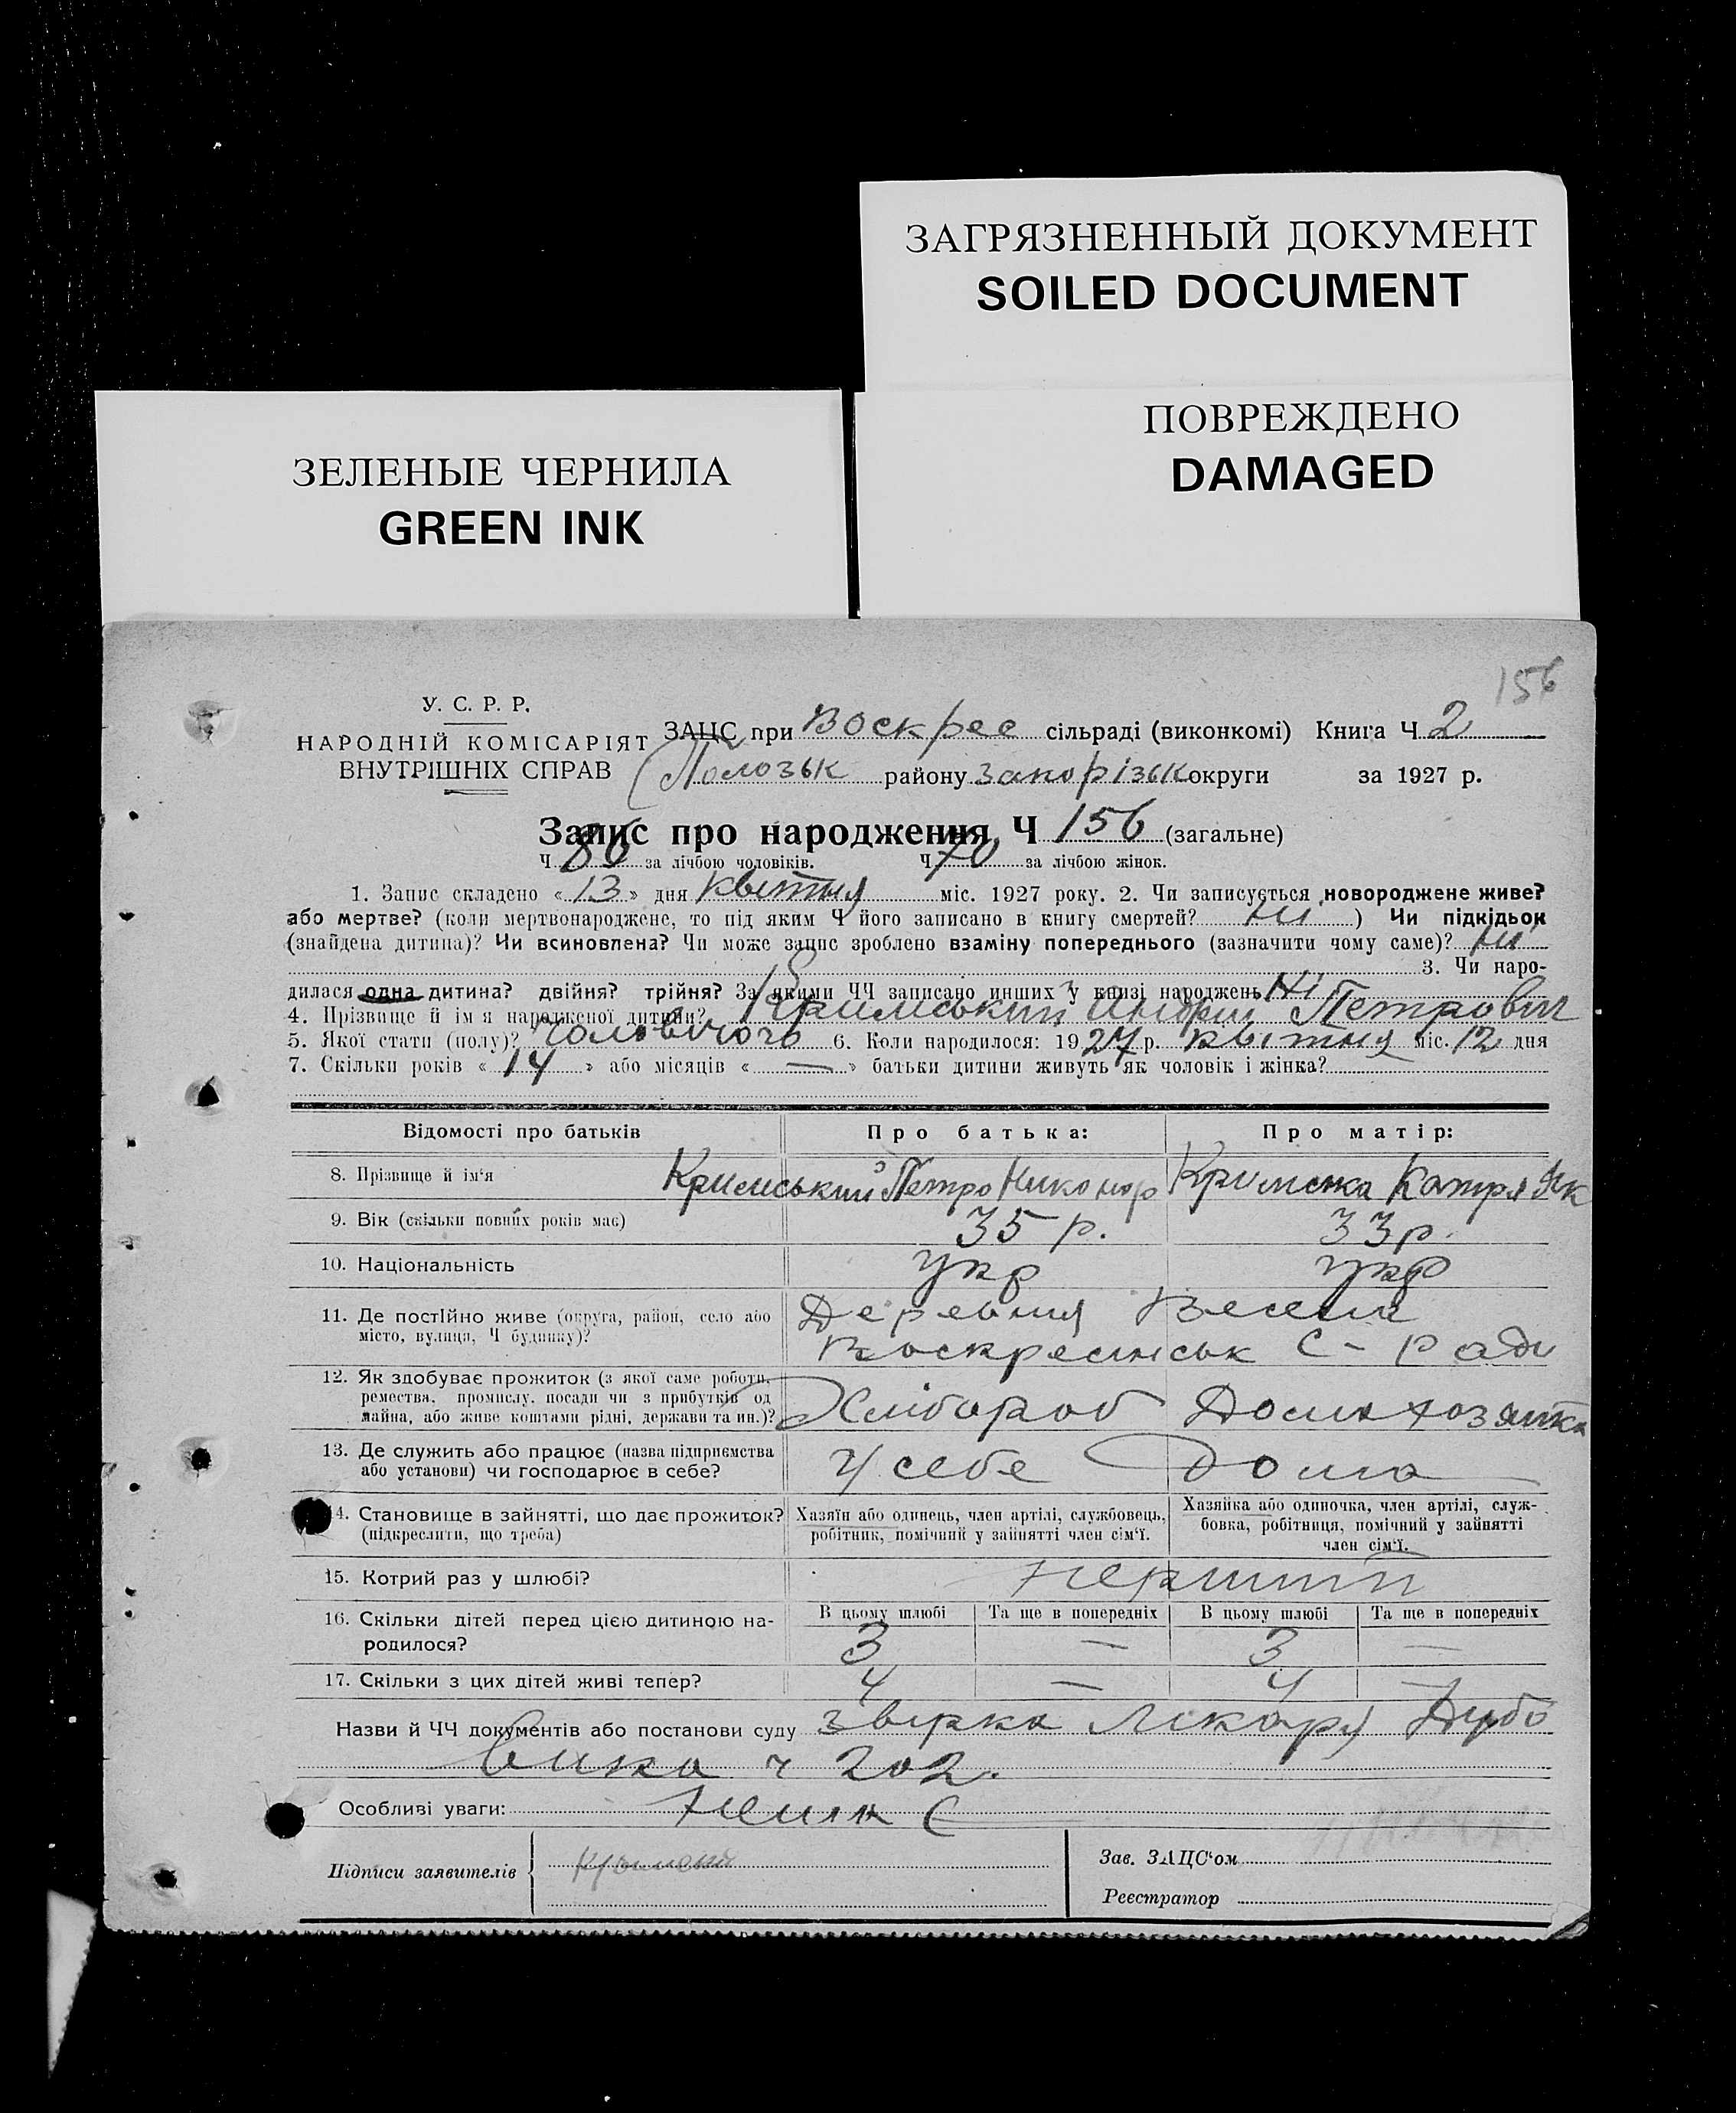 ЗАГРЯЗНЕННЫЙ ДОКУМЕНТ
SOILED DOCUMENT
ПОВРЕЖДЕНО
DAMAGED
ЗЕЛЕНЫЕ ЧЕРНИЛА
GREEN INK
156
У. С. Р. Р.
НАРОДНІЙ КОМІСАРІЯТ
ВНУТРІШНІХ СПРАВ
ЗАЦС при Воскрес сільраді (виконкомі) Книга Ч 2
Полозьк району Запорізьк округи за 1927 р.
Запис про народження Ч 156 (загальне)
Ч 86 за лічбою чоловіків. Ч 70 за лічбою жінок.
1. Запис складено « 13 » дня квітня міс. 1927 року. 2. Чи записується новороджене живе?
або мертве? (коли мертвонароджене, то під яким Ч його записано в книгу смертей? ні ) Чи підкідьок
(знайдена дитина)? Чи всиновлена? Чи може запис зроблено взаміну попереднього (зазначити чому саме)? ні
3. Чи наро-
дилася одна дитина? двійня? трійня? За якими ЧЧ записано инших у книзі народжень Ні
4. Прізвище й ім я народженої дитини? Кримський Андрій Петрович
5. Якої стати (полу)? чоловічого 6. Коли народилося: 1927 р. квітня міс. 12 дня
7. Скільки років « 14 » або місяців « — » батьки дитини живуть як чоловік і жінка?
Відомості про батьків Про батька: Про матір:
8. Прізвище й ім'я Кримський Петро Никонор Кримська Катря Як
9. Вік (скільки повних років має) 35 р. 33 р.
10. Національність укр укр
11. Де постійно живе (округа, район, село або Деревня Весела
місто, вулиця, Ч будинку)? Воскресінськ С-Ради
12. Як здобуває прожиток (з якої саме роботи,
ремества, промислу, посади чи з прибутків од
майна, або живе коштами рідні, держави та ин.)? Хлібороб Домохозяйка
13. Де служить або працює (назва підприємства
або установи) чи господарює в себе? У себе Дома
14. Становище в зайнятті, що дає прожиток? Хазяїн або одинець, член артілі, службовець, Хазяйка або одиночка, член артілі, служ-
(підкреслити, що треба) робітник, помічний у зайнятті член сім'ї. бовка, робітниця, помічний у зайнятті
член сім'ї.
15. Котрий раз у шлюбі? первий
16. Скільки дітей перед цією дитиною на- В цьому шлюбі Та ще в попередніх В цьому шлюбі Та ще в попередніх
родилося? 3 — 3 —
17. Скільки з цих дітей живі тепер? 4 — 4 —
Назви й ЧЧ документів або постанови суду звірка лікаря Дубо
вика ч 202.
Особливі уваги: Немає
Підписи заявителів Зав. ЗАЦС'ом
Реєстратор